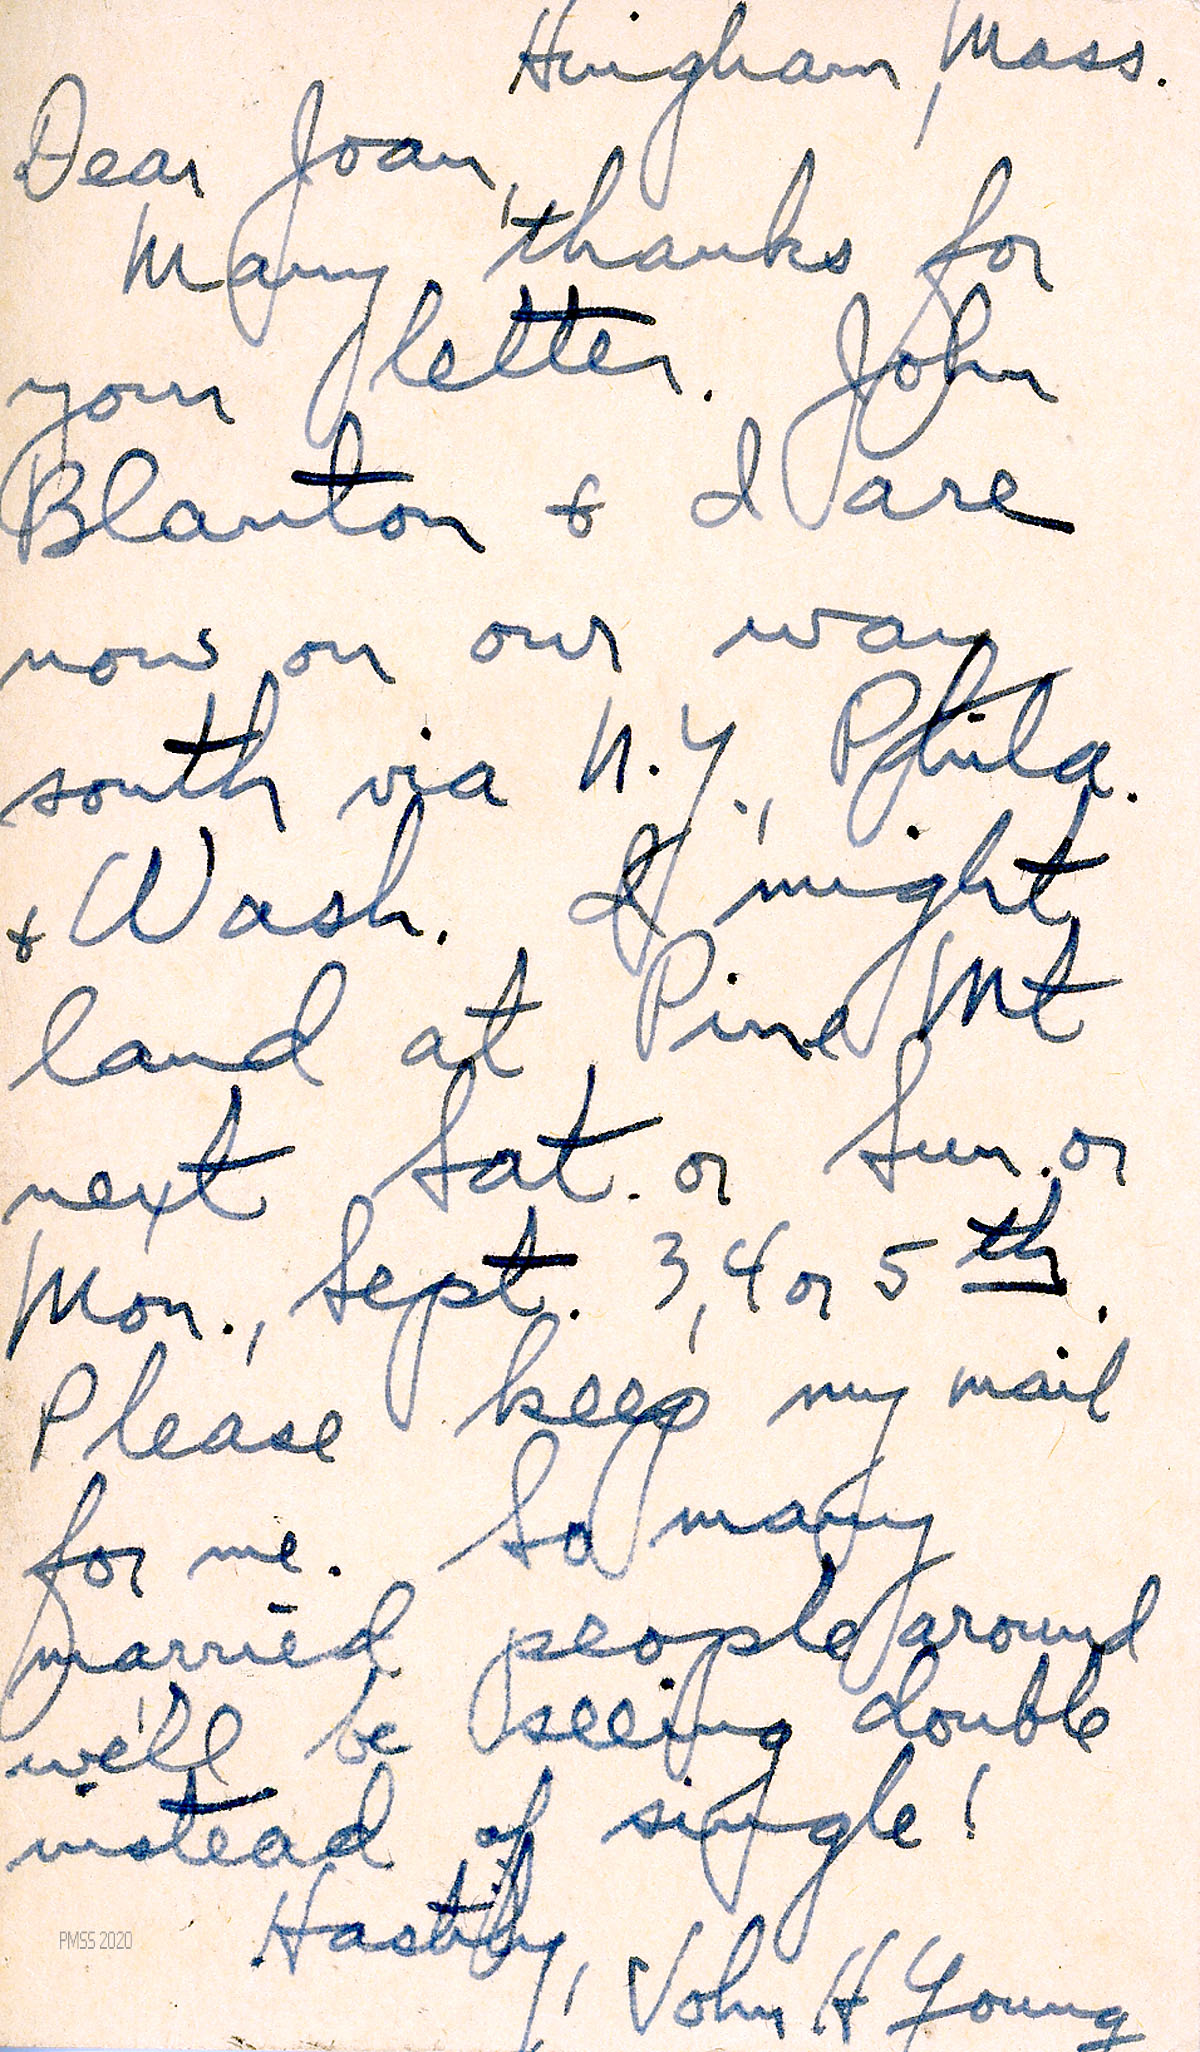 Hingham, Mass.
Dear Joan,
Many thanks for
your letter. John
Blanton & I are
now on our way
south via N.Y., Phila.
& Wash. I might
land at Pine Mt
next Sat. or Sun. or
Mon., Sept. 3, 4 or 5th.
Please keep my mail
for me. So many
married people around
we'll be seeing double
instead of single!
Hastily, John H Young
PMSS 2020